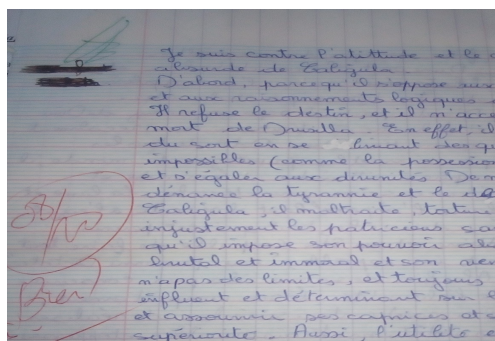 Je suis contre l'atittude et le
absurde de Caligula
D'abord, parce qu'il s'oppose aux
et aux raisonnements logiques
Il refuse le destin, et il n'acce
mort de Drusilla. En effet, il
du sort en se livrant des qu
impossibles (comme la possession
et s'égaler aux divinités De
dénonce la tyrannie et le
Caligula, il maltraite, torture
injustement les patriciens sa
qu'il impose son pouvoir
brutal et immoral et son
n'a pas des limites, et toujours
influent et déterminant sur
et assouvir ses caprices et
supériorité. Aussi, l'utilité
08/10
Bien